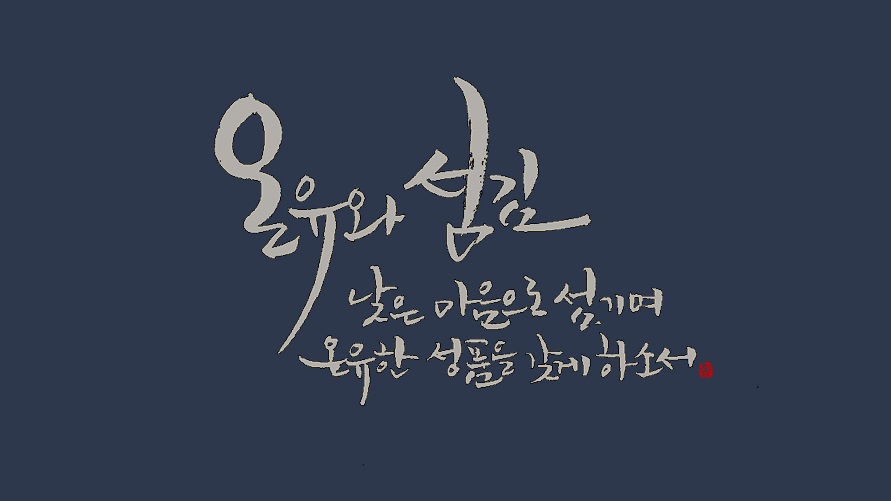 온유와 섬김
낮은 마음으로 섬기며
온유한 성품을 갖게 하소서